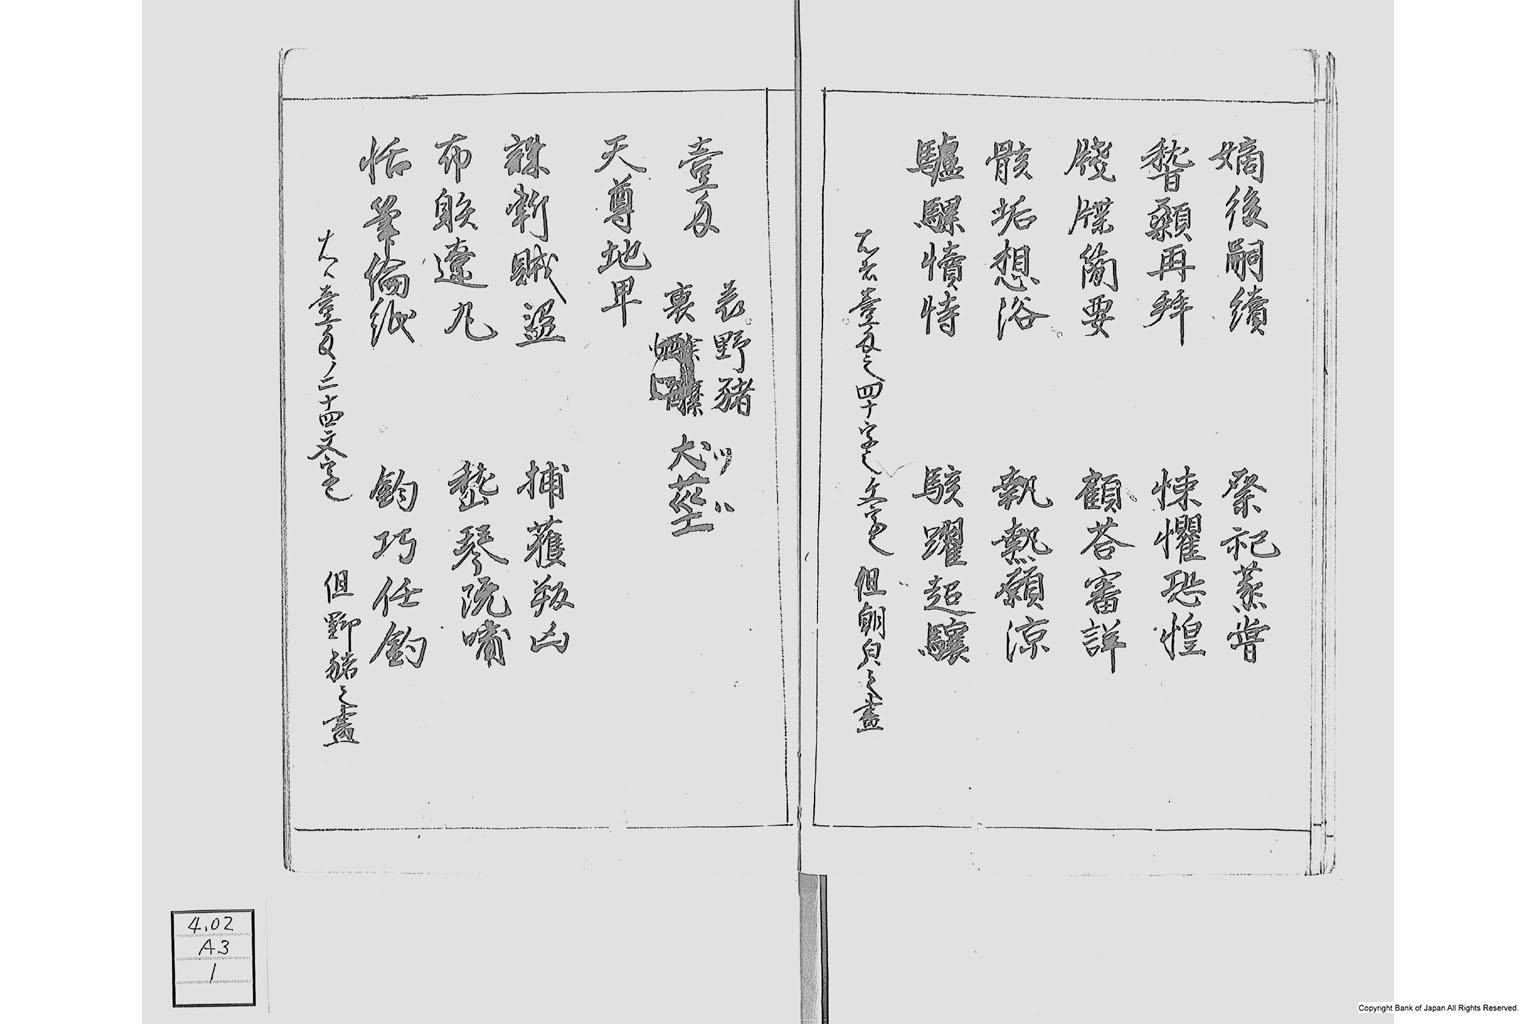 嫡後嗣續 祭祀蒸嘗
稽顙再拜 悚懼恐惶
牋牒簡要 顧荅審詳
骸垢想浴 執熱願涼
驢騾犢特 駭躍超驤
壹匁之四十字之文字也 但
之畫
壹匁
表野猪
裏 犬
天尊地卑
誅斬賊盗 捕獲叛
布射遼丸 嵆琴阮嘯
恬筆倫紙 鈞巧任釣
壹匁ノ二十四文字也 但野猪之畫
4.02
A3
1
Copyright Bank of Japan All Rights Reserved.